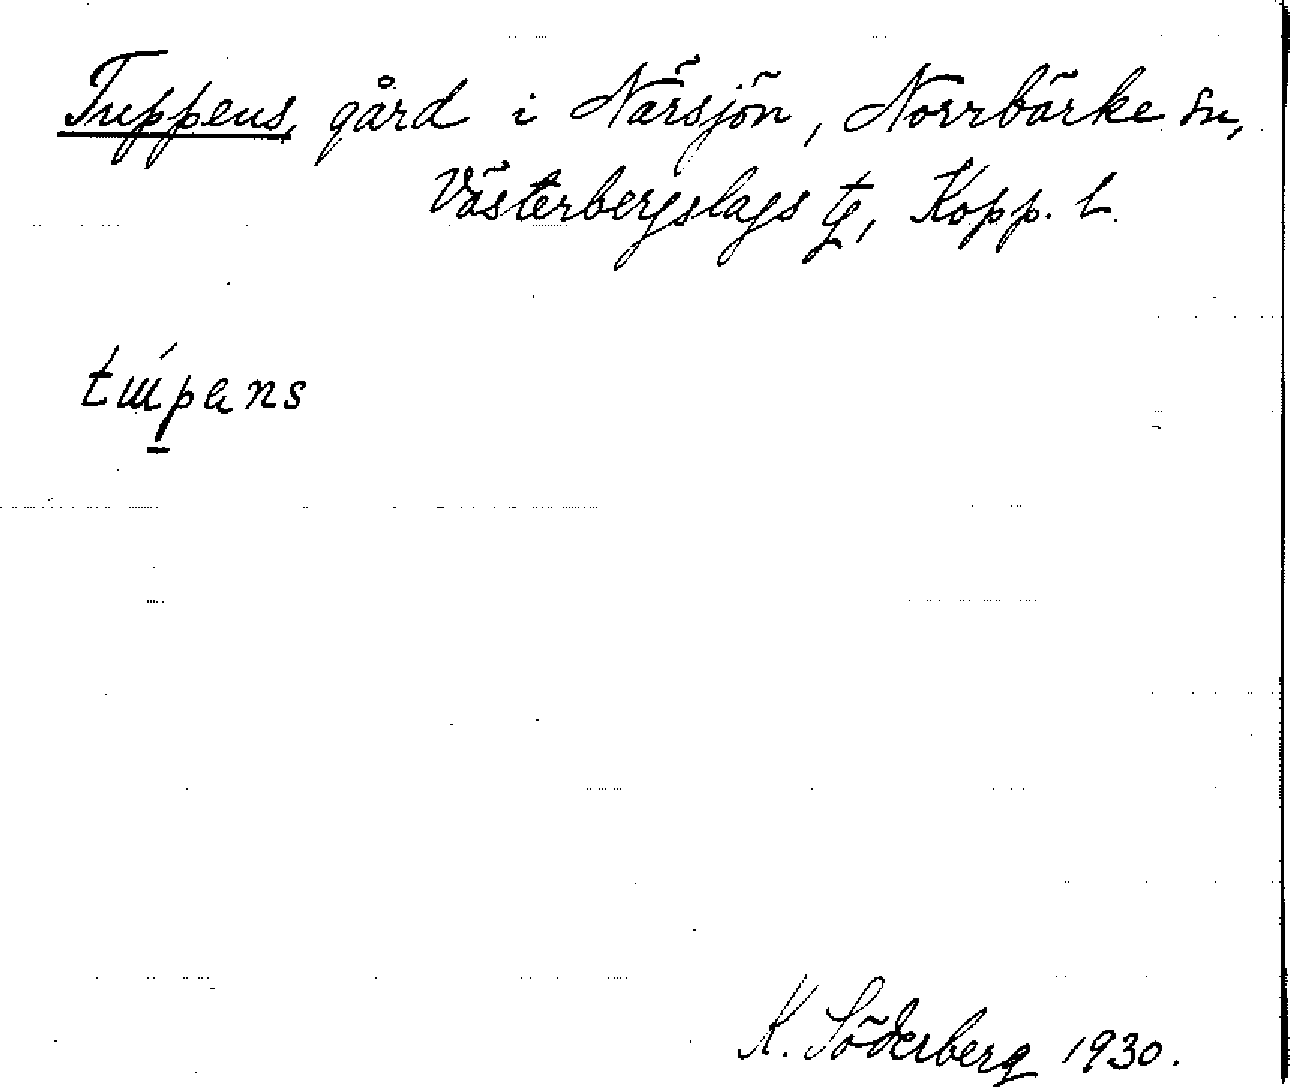 Tuppens, gård i Närsjön, Norrbärke sn,
Västerbergslags tg, Kopp. L.
K. Söderberg 1930.